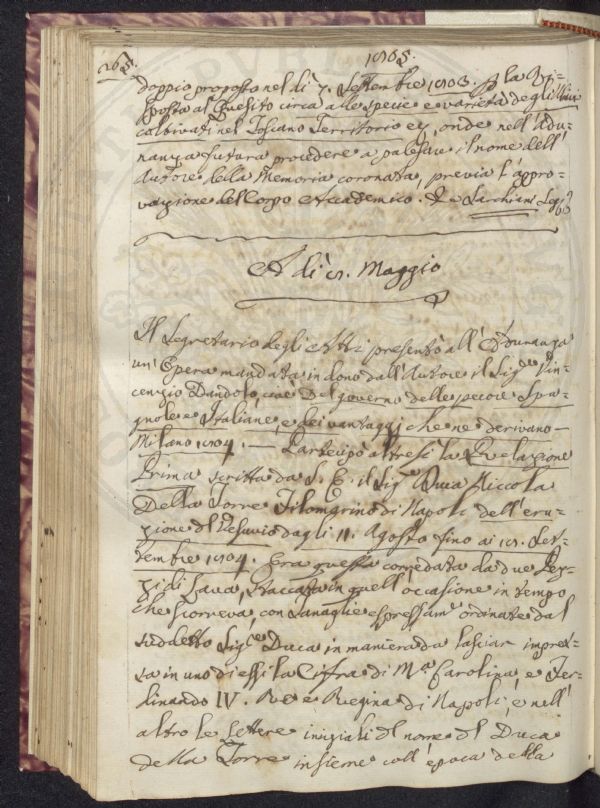 268.
1805.
doppio proposto nel dì 7. Settembre 1803. p. la Ri-
sposta al Quesito circa alle specie e varietà degli Ulivi
coltivati nel Toscano Territorio ec., onde nell'Adu-
nanza futura procedere a palesare il nome dell'
Autore della Memoria coronata, previa l'appro-
vazione del Corpo Accademico.
A dì 8. Maggio
Il Segretario degli Atti presentò all'Adunanza
un' Opera mandata in dono dall'Autore il Sig.re Vin-
cenzio Dandolo, cioè Del governo delle pecore Spa-
gnole e Italiane, e dei vantaggj che ne derivano -
Milano 1804. - Partecipò altresì la Relazione
Prima scritta da S. E. il Sig.r Duca Niccola
Della Torre Filomarino di Napoli dell'eru-
zione del Vesuvio dagli 11. Agosto fino ai 18. Set-
tembre 1804. Era questa corredata da due Pez-
zi di Lava, staccata in quell'occasione in tempo
che scorreva, con tanaglie espressam.e ordinate dal
suddetto Sig.re Duca in maniera da lasciar impres-
sa in uno di essi la Cifra di M.a Carolina, e Fer-
dinando IV. Re e Regina di Napoli, e nell'
altro le lettere iniziali del nome del Duca
della Torre insieme coll'epoca della